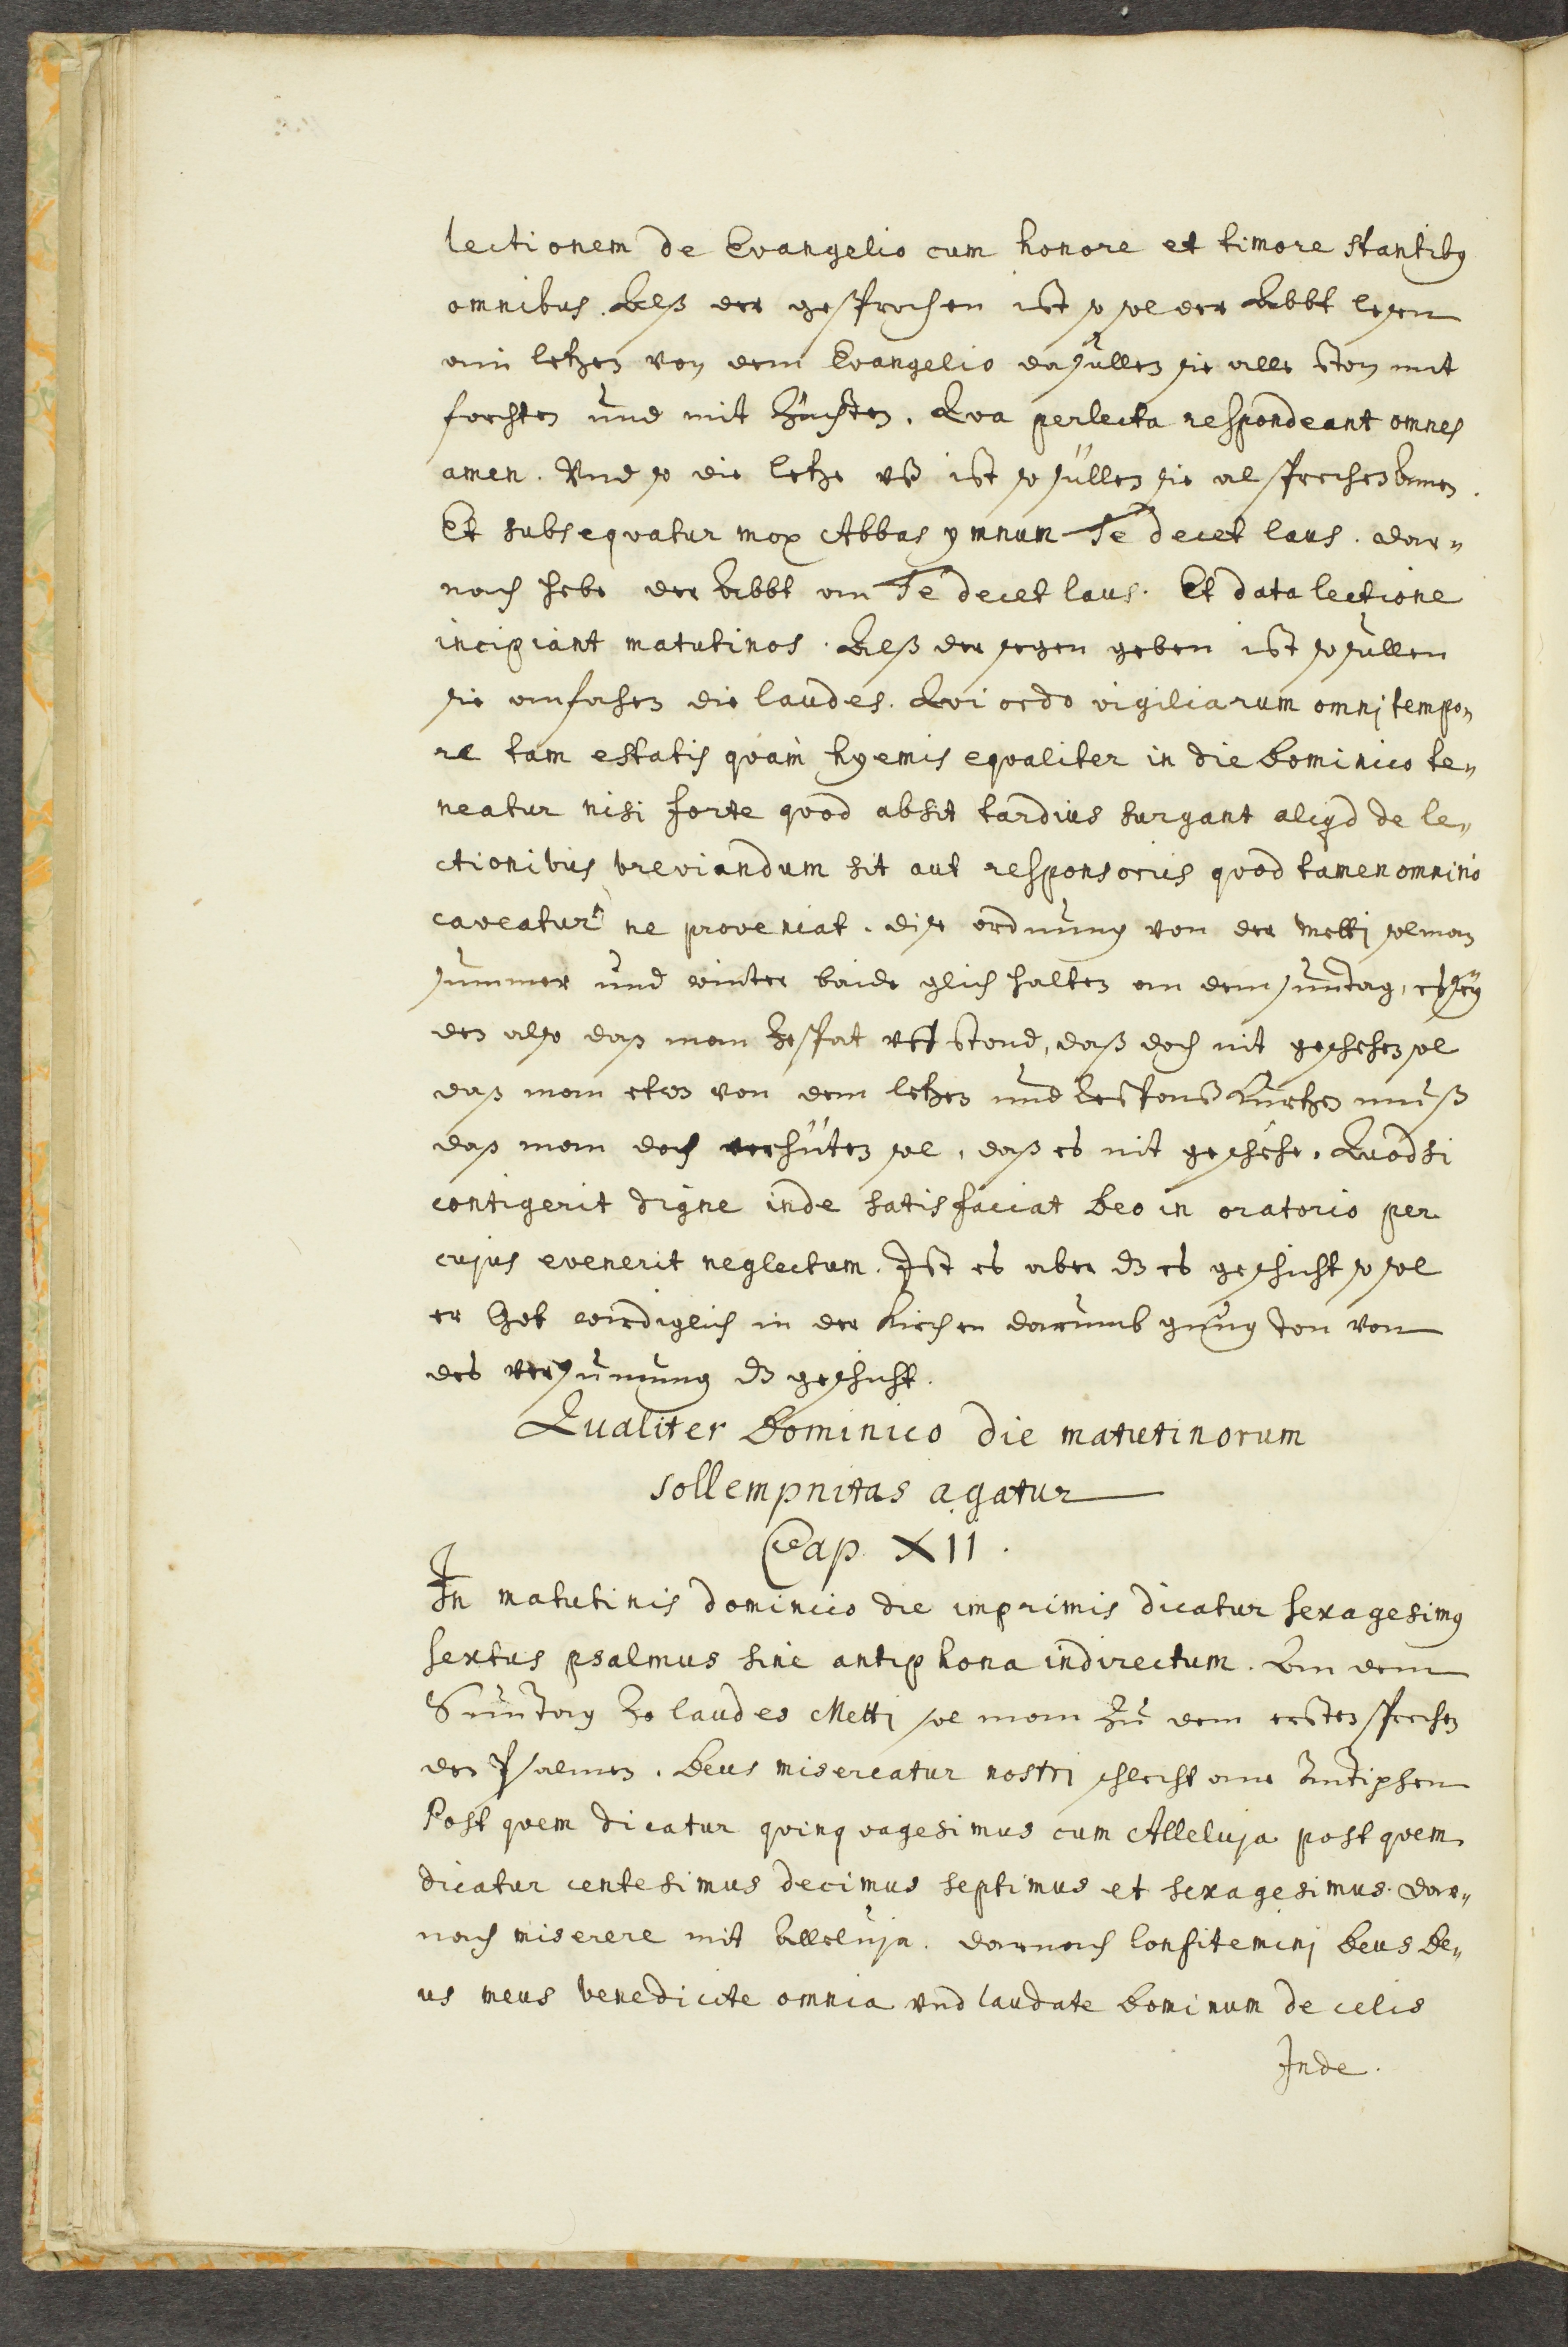 lectionem de Evangelio cum honore et timore stantibꝰ
omnibus. Alß der gesprochen ist so sol der Abbt lesen
ain letzen von dem Evangelio da sullen sie alle ston mit
forchten und mit Züchten. Qva perlecta respondeant omnes
amen. Vnd so die letze vß ist so süllen sie al sprechen Amen.
Et subseqvatur mox Abbas ymnum Te decet laus. dar„
nach hebe der Abbt an Te decet laus. Et data lectione
incipiant matutinos. Alß der segen geben ist so sullen
sie anfahen die laudes. Qvi ordo vigiliarum omnj tempo„
re tam estatis qvam hyemis eqvaliter in die Dominico te„
neatur nisi forte qvod absit tardius surgant aliqd de le„
ctionibus breviandum sit aut responsoriis qvod tamen omnino
caveatur ne proveniat. dise ordnung von der Metti sol man
summer und winter baide glich halten an dem suntag, es sey
den also daß man ze spat vff stond, daß doch nit geschehen sol
daß man etwz von dem letzen und Respons kürtzen muß
daß man doch verhüten sol, daß es nit geschehe. Quod si
contigerit digne inde satisfaciat Deo in oratorio per
cujus evenerit neglectum. Ist es aber dz es geschicht so sol
er Got wirdiglich in der kirchen darumb gnug ton von
des versumung dz geschicht.
Qualiter Dominico die matutinorum
sollempnitas agatur
Cap XII.
In matutinis dominico die imprimis dicatur sexagesimꝰ
sextus psalmus sine antiphona indirectum. An dem
Suntag ze laudes Metti sol man zu dem ersten sprechen
den Psalmen. Deus misereatur nostri schlecht one Antiphen
Post qvem dicatur qvinqvagesimus cum Alleluja post qvem
dicatur centesimus decimus septimus et sexagesimus. dar„
nach miserere mit Alleluja. darnach Confiteminj Deus De„
us meus benedicite omnia vnd laudate Dominum de celis
Inde.